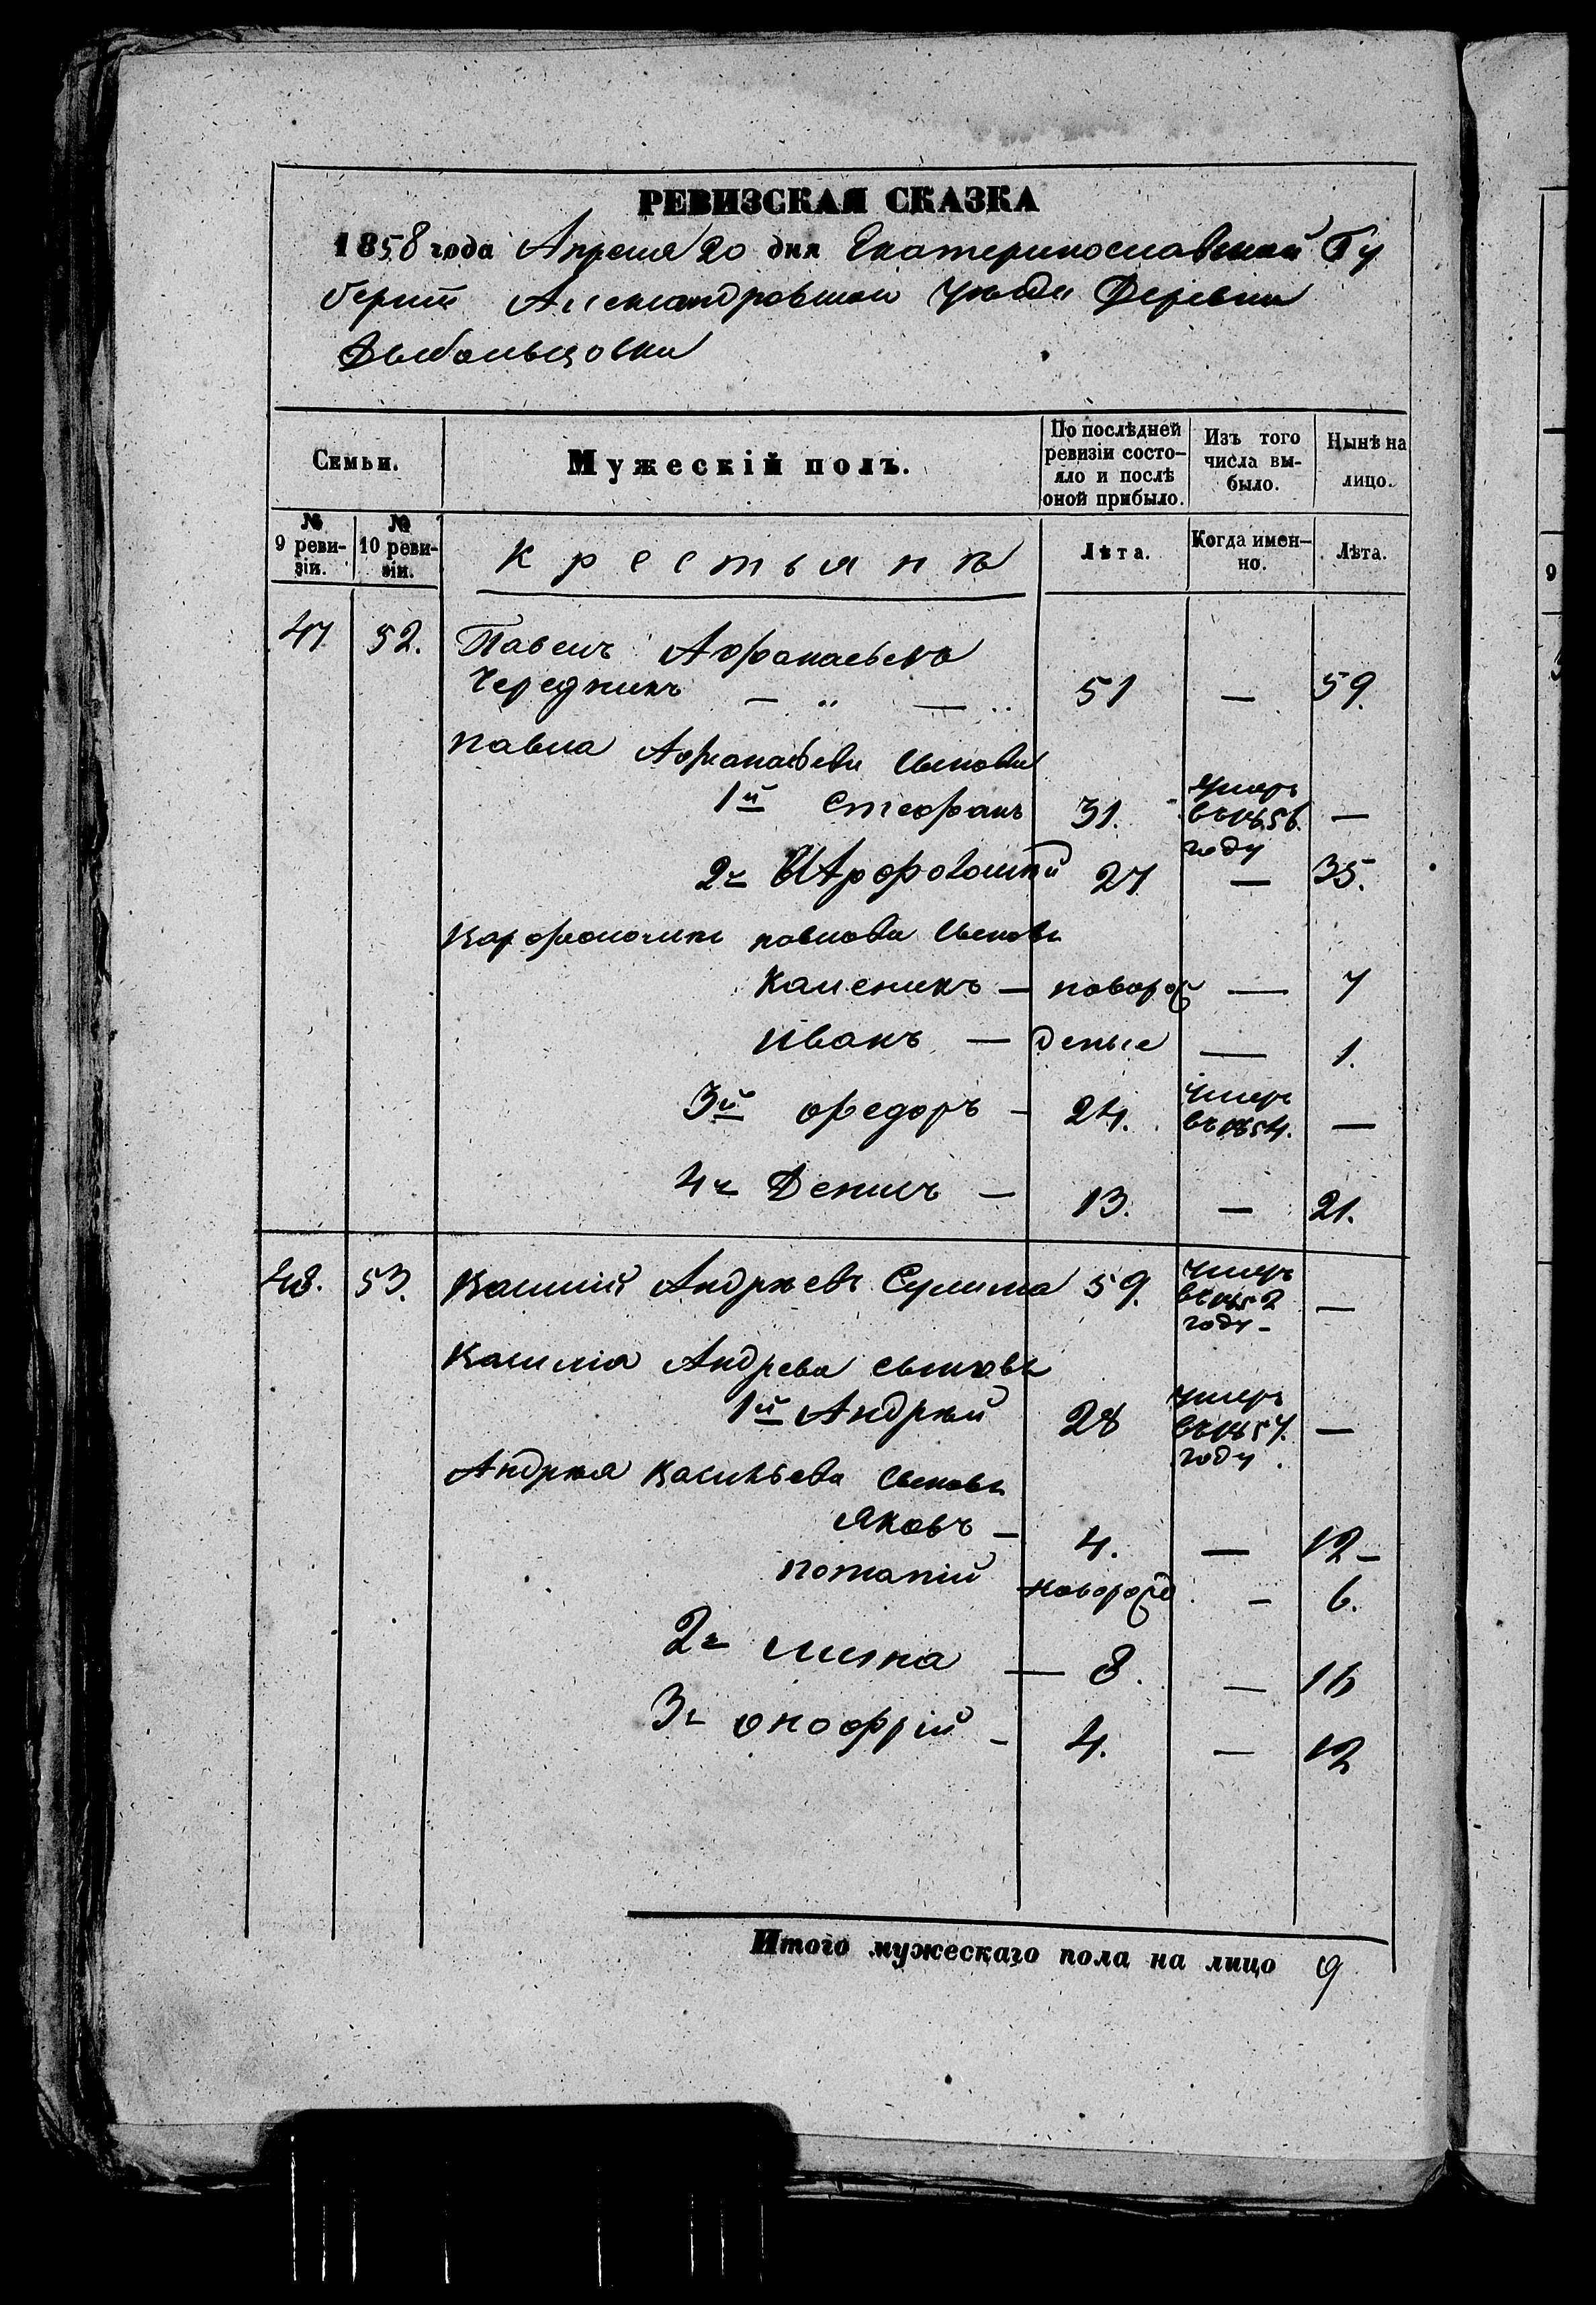 РЕВИЗСКАЯ СКАЗКА
1858 года Апреля 20 дня Екатеринославской Гу
берніи Александровскаго Уезда Деревни
Семьи.
Мужескій полъ.
По послѣдней ревизіи состо-
яло и послѣ оной прибыло.
Изъ того числа вы-
было.
Нынѣ на лицо.
№ 9 реви-
зіи.
№ 10 реви-
зіи.
Крестьянъ
Лѣта.
Когда имен-
но.
Лѣта.
47 52. Павелъ Афонасьевъ
Чередникъ — „ — „ 51 — 59.
Павла Афонасьева сыновья
1й Стефанъ 31. умеръ въ 1856. году —
2й 27 — 35.
Павлова сыновья
Каленикъ — новорож — 7
Иванъ — деные — 1.
3й Федоръ — 24. умеръ въ 1854. —
4й Денисъ — 13. — 21.
48. 53. Василий Андреевъ Сулима 59. умеръ въ 1852 году —
Василія Андрева сыновья
1й Андрей 28 умеръ въ 1857. году —
Андрея Васильева сыновья
Яковъ — 4. — 12 —
Потапій новорожд — 6.
2й — 8. — 16
3й Онофрій — 4. — 12
Итого мужескаго пола на лицо 9
9